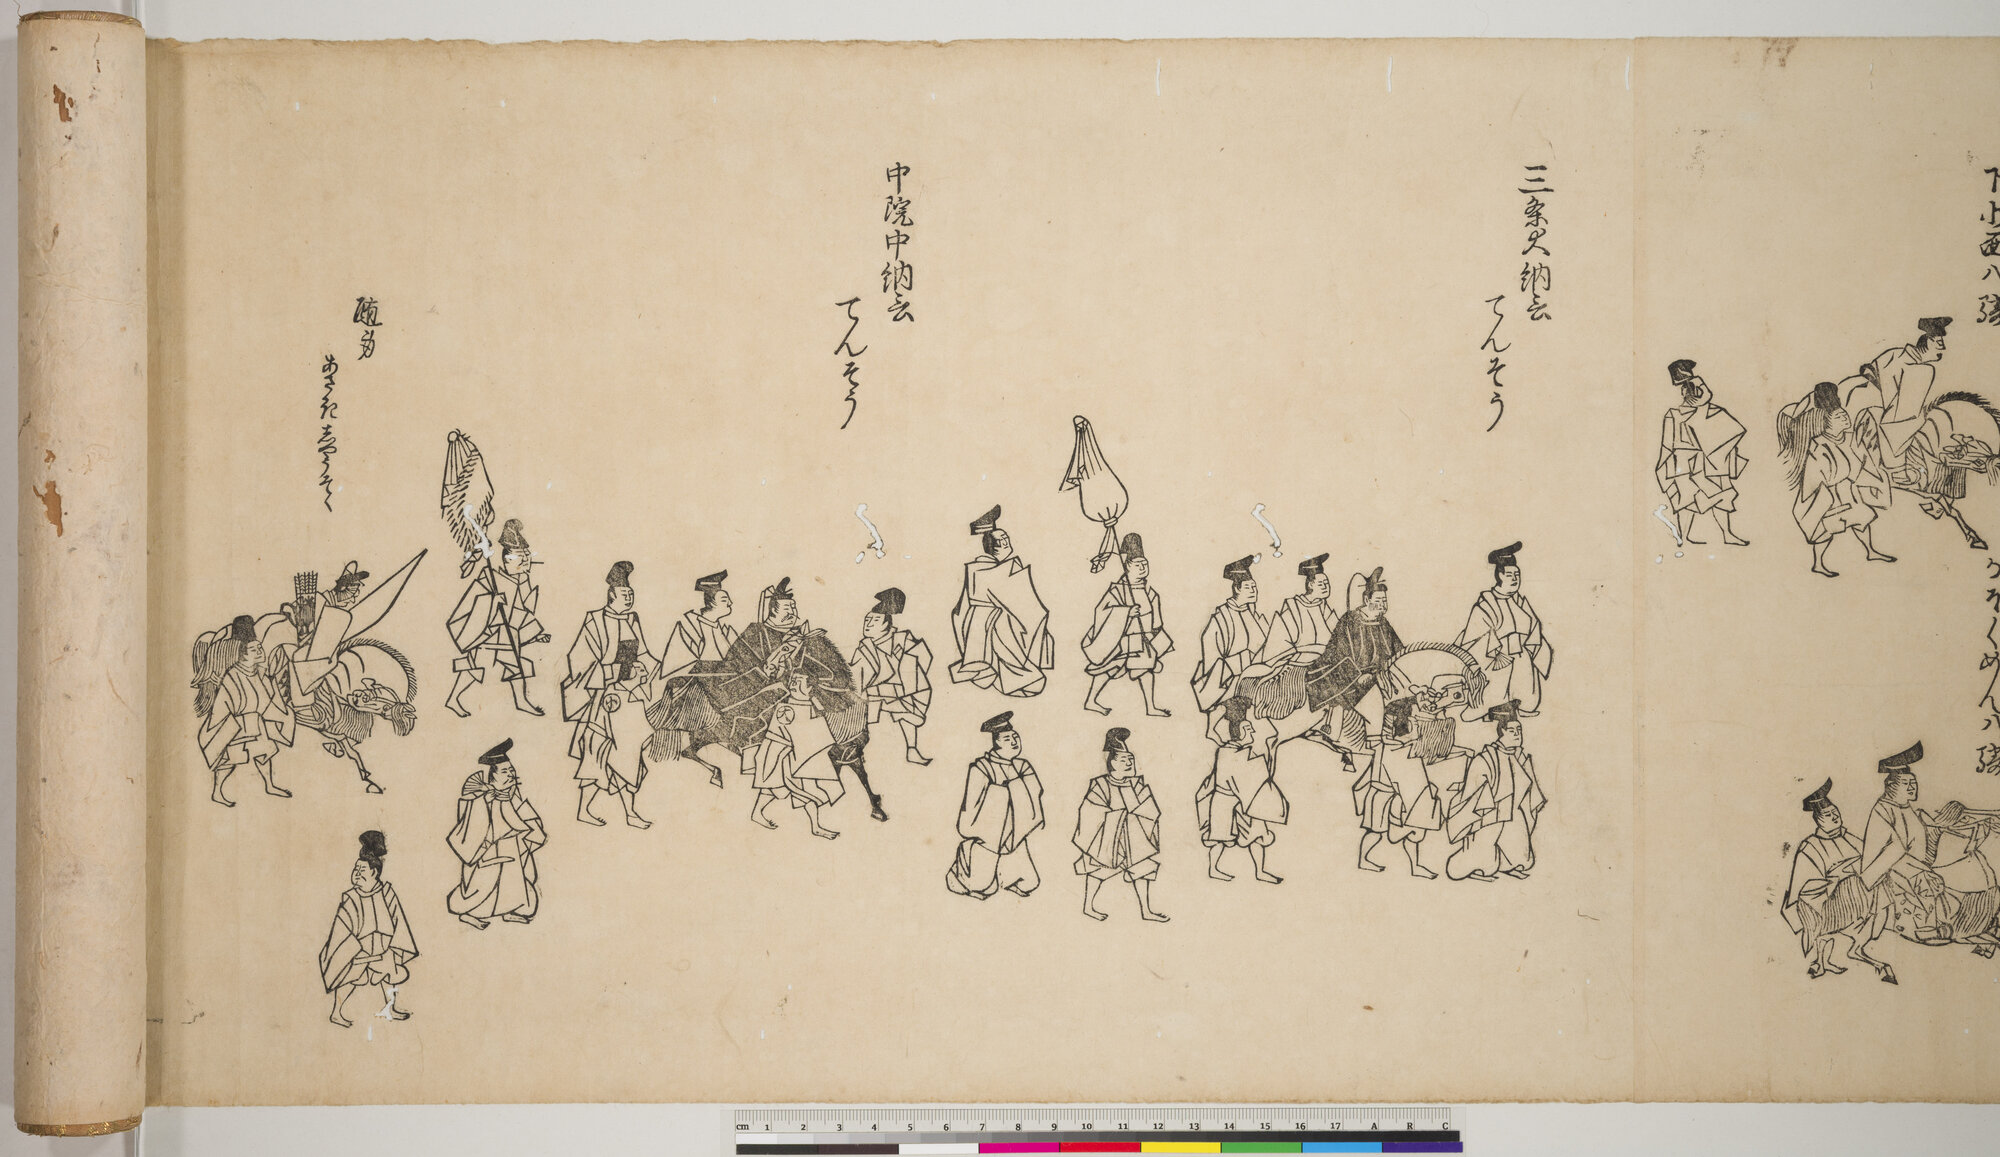 下北面八騎
かほくめん八騎
三条大納言
てんそう
中院中納言
てんそう
随身
あさきしやうそく
cm 1 2 3 4 5 6 7 8 9 10 11 12 13 14 15 16 17 A R C